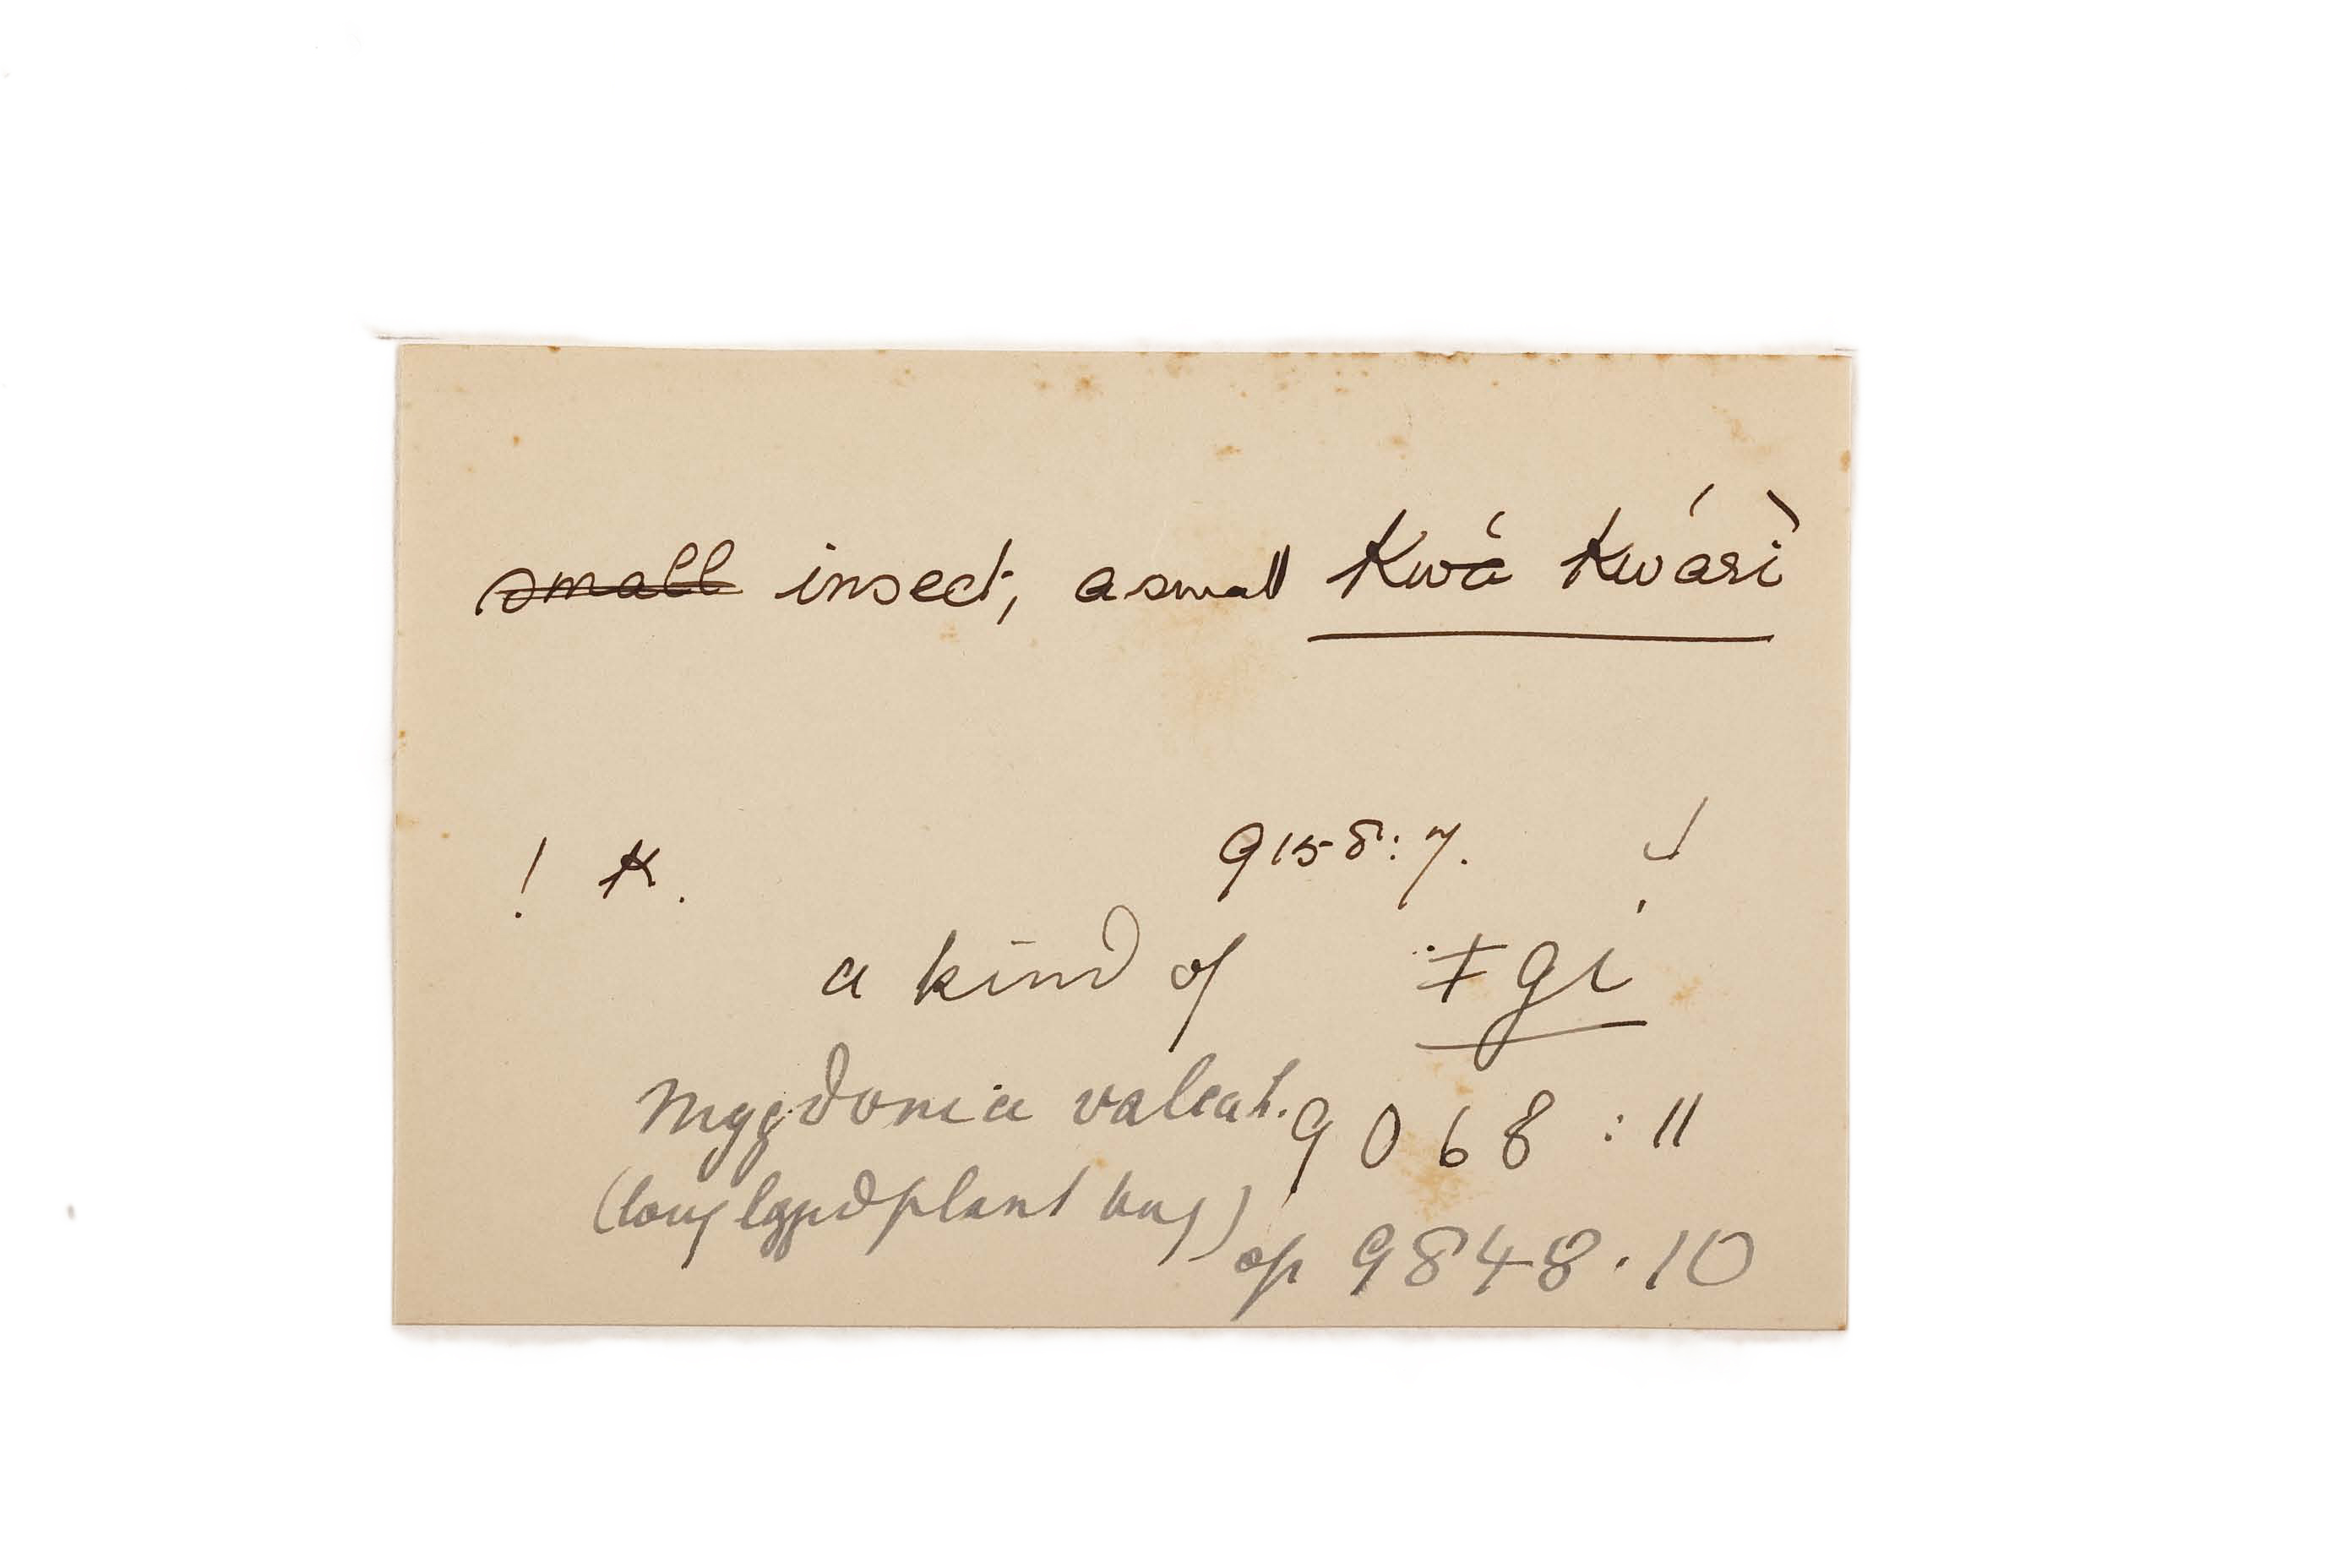 ~~small~~ insect, a small Kwá Kwárì
! K. 9158:7. ✓
a kind of ǂgí
Mygdonia valeat. 9068:11
(long legged plant bug) op 9848.10